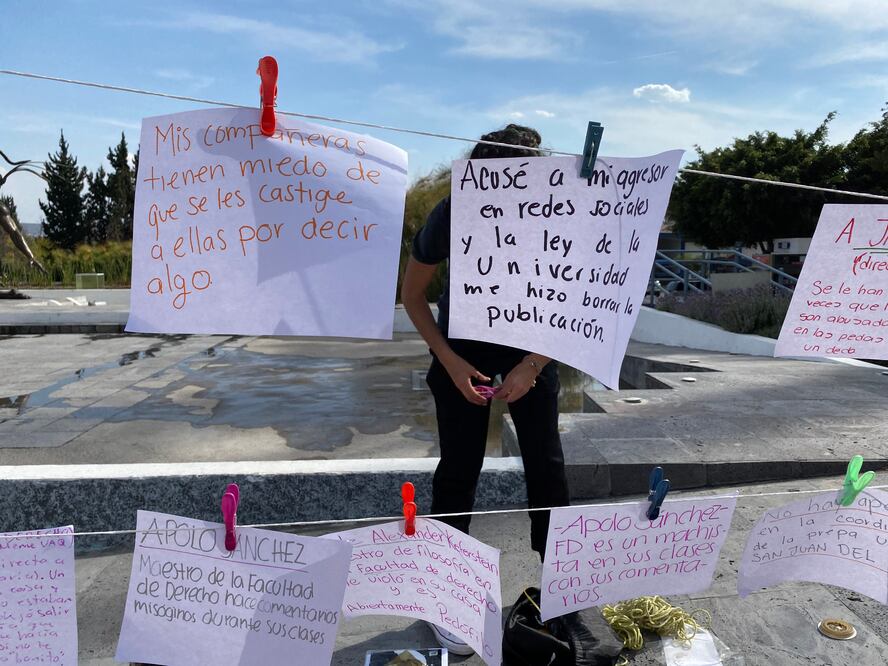 Mis compañeras
tienen miedo de
que se les castigue
a ellas por decir
algo.
Acusé a mi agresor
en redes sociales
y la ley de la
Universidad
me hizo borrar la
publicación.
A J
(direc
Se le han
veces que
son abusada
en las pedas
un decb
UAQ
irecta a
Un
cosa
estaban
salir
que
hacía
si no te
"bonita".
APOLO SÁNCHEZ
Maestro de la Facultad
de Derecho hace comentarios
misóginos durante sus clases
Alexander Keferstein
stro de filosofía en
Facultad de derecho
me violó en su casa
y es
Abiertamente Pedófilo
-Apolo Sánchez-
FD es un machis-
ta en sus clases
con sus comenta-
rios.
No hay apo
en la coordi
de la prepa U
SAN JUAN DEL